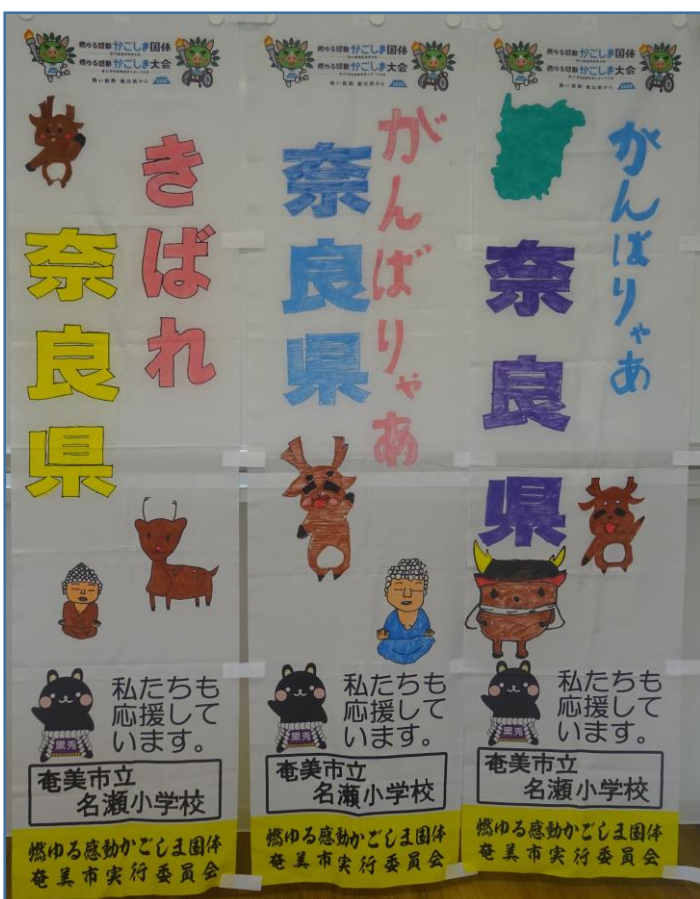 燃ゆる感動かごしま国体
燃ゆる感動かごしま大会
熱い鼓動 風は南から
きばれ
奈良県
私たちも
応援して
います。
黒兎
奄美市立
名瀬小学校
燃ゆる感動かごしま国体
奄美市実行委員会
燃ゆる感動かごしま国体
燃ゆる感動かごしま大会
熱い鼓動 風は南から
がんばりゃあ
奈良県
私たちも
応援して
います。
黒兎
奄美市立
名瀬小学校
燃ゆる感動かごしま国体
奄美市実行委員会
燃ゆる感動かごしま国体
燃ゆる感動かごしま大会
熱い鼓動 風は南から
がんばりゃあ
奈良県
私たちも
応援して
います。
黒兎
奄美市立
名瀬小学校
燃ゆる感動かごしま国体
奄美市実行委員会